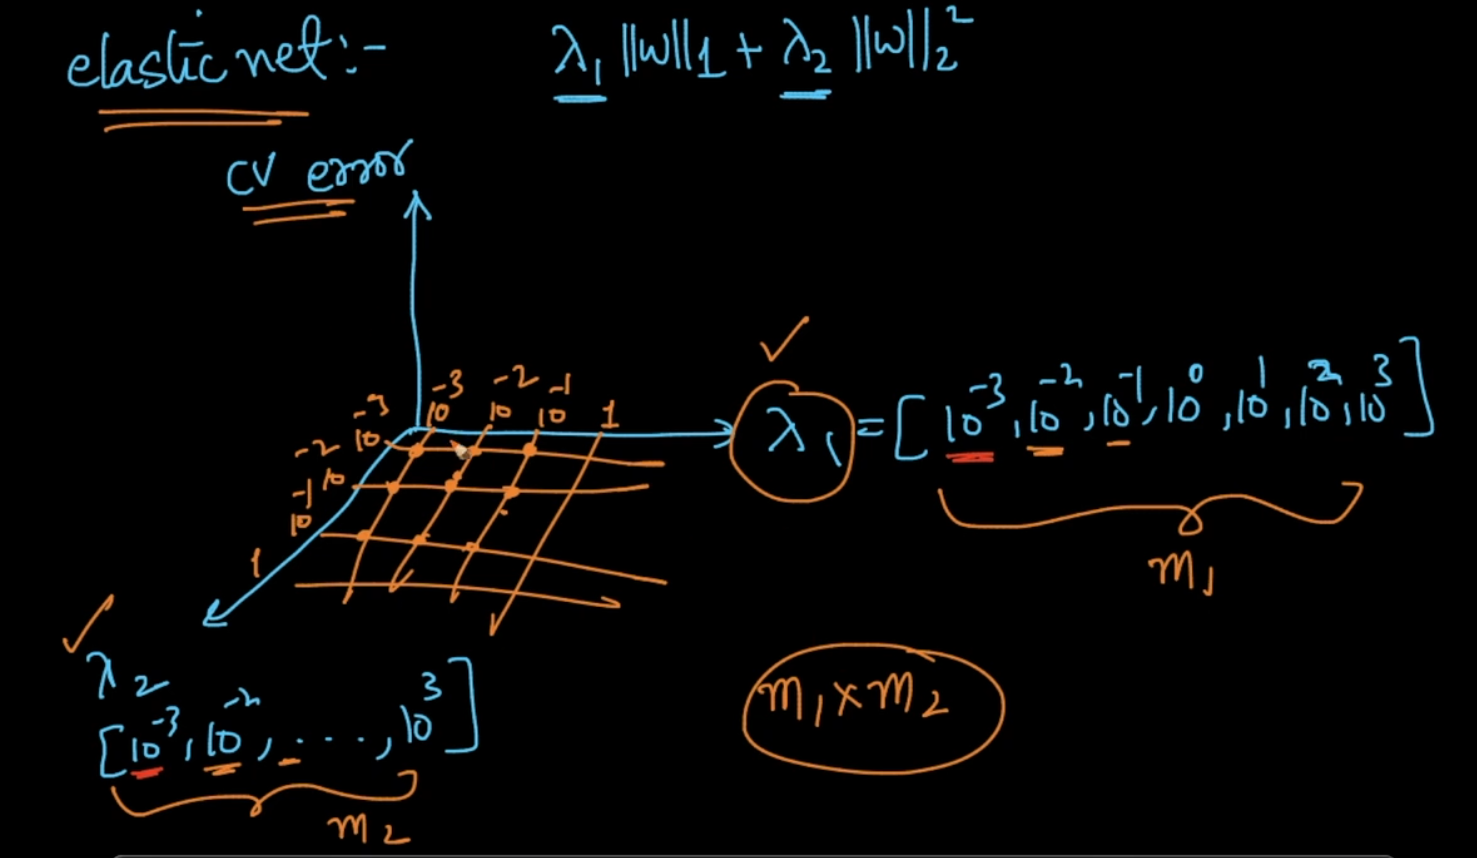 elastic net:- λ₁ ||w||₁ + λ₂ ||w||₂²
CV error
10⁻³ 10⁻² 10⁻¹ 1
10⁻³
10⁻²
10⁻¹
1
λ₁ = [10⁻³, 10⁻², 10⁻¹, 10⁰, 10¹, 10², 10³]
m₁
λ₂
[10⁻³, 10⁻², . . . ., 10³]
m₂
m₁ x m₂